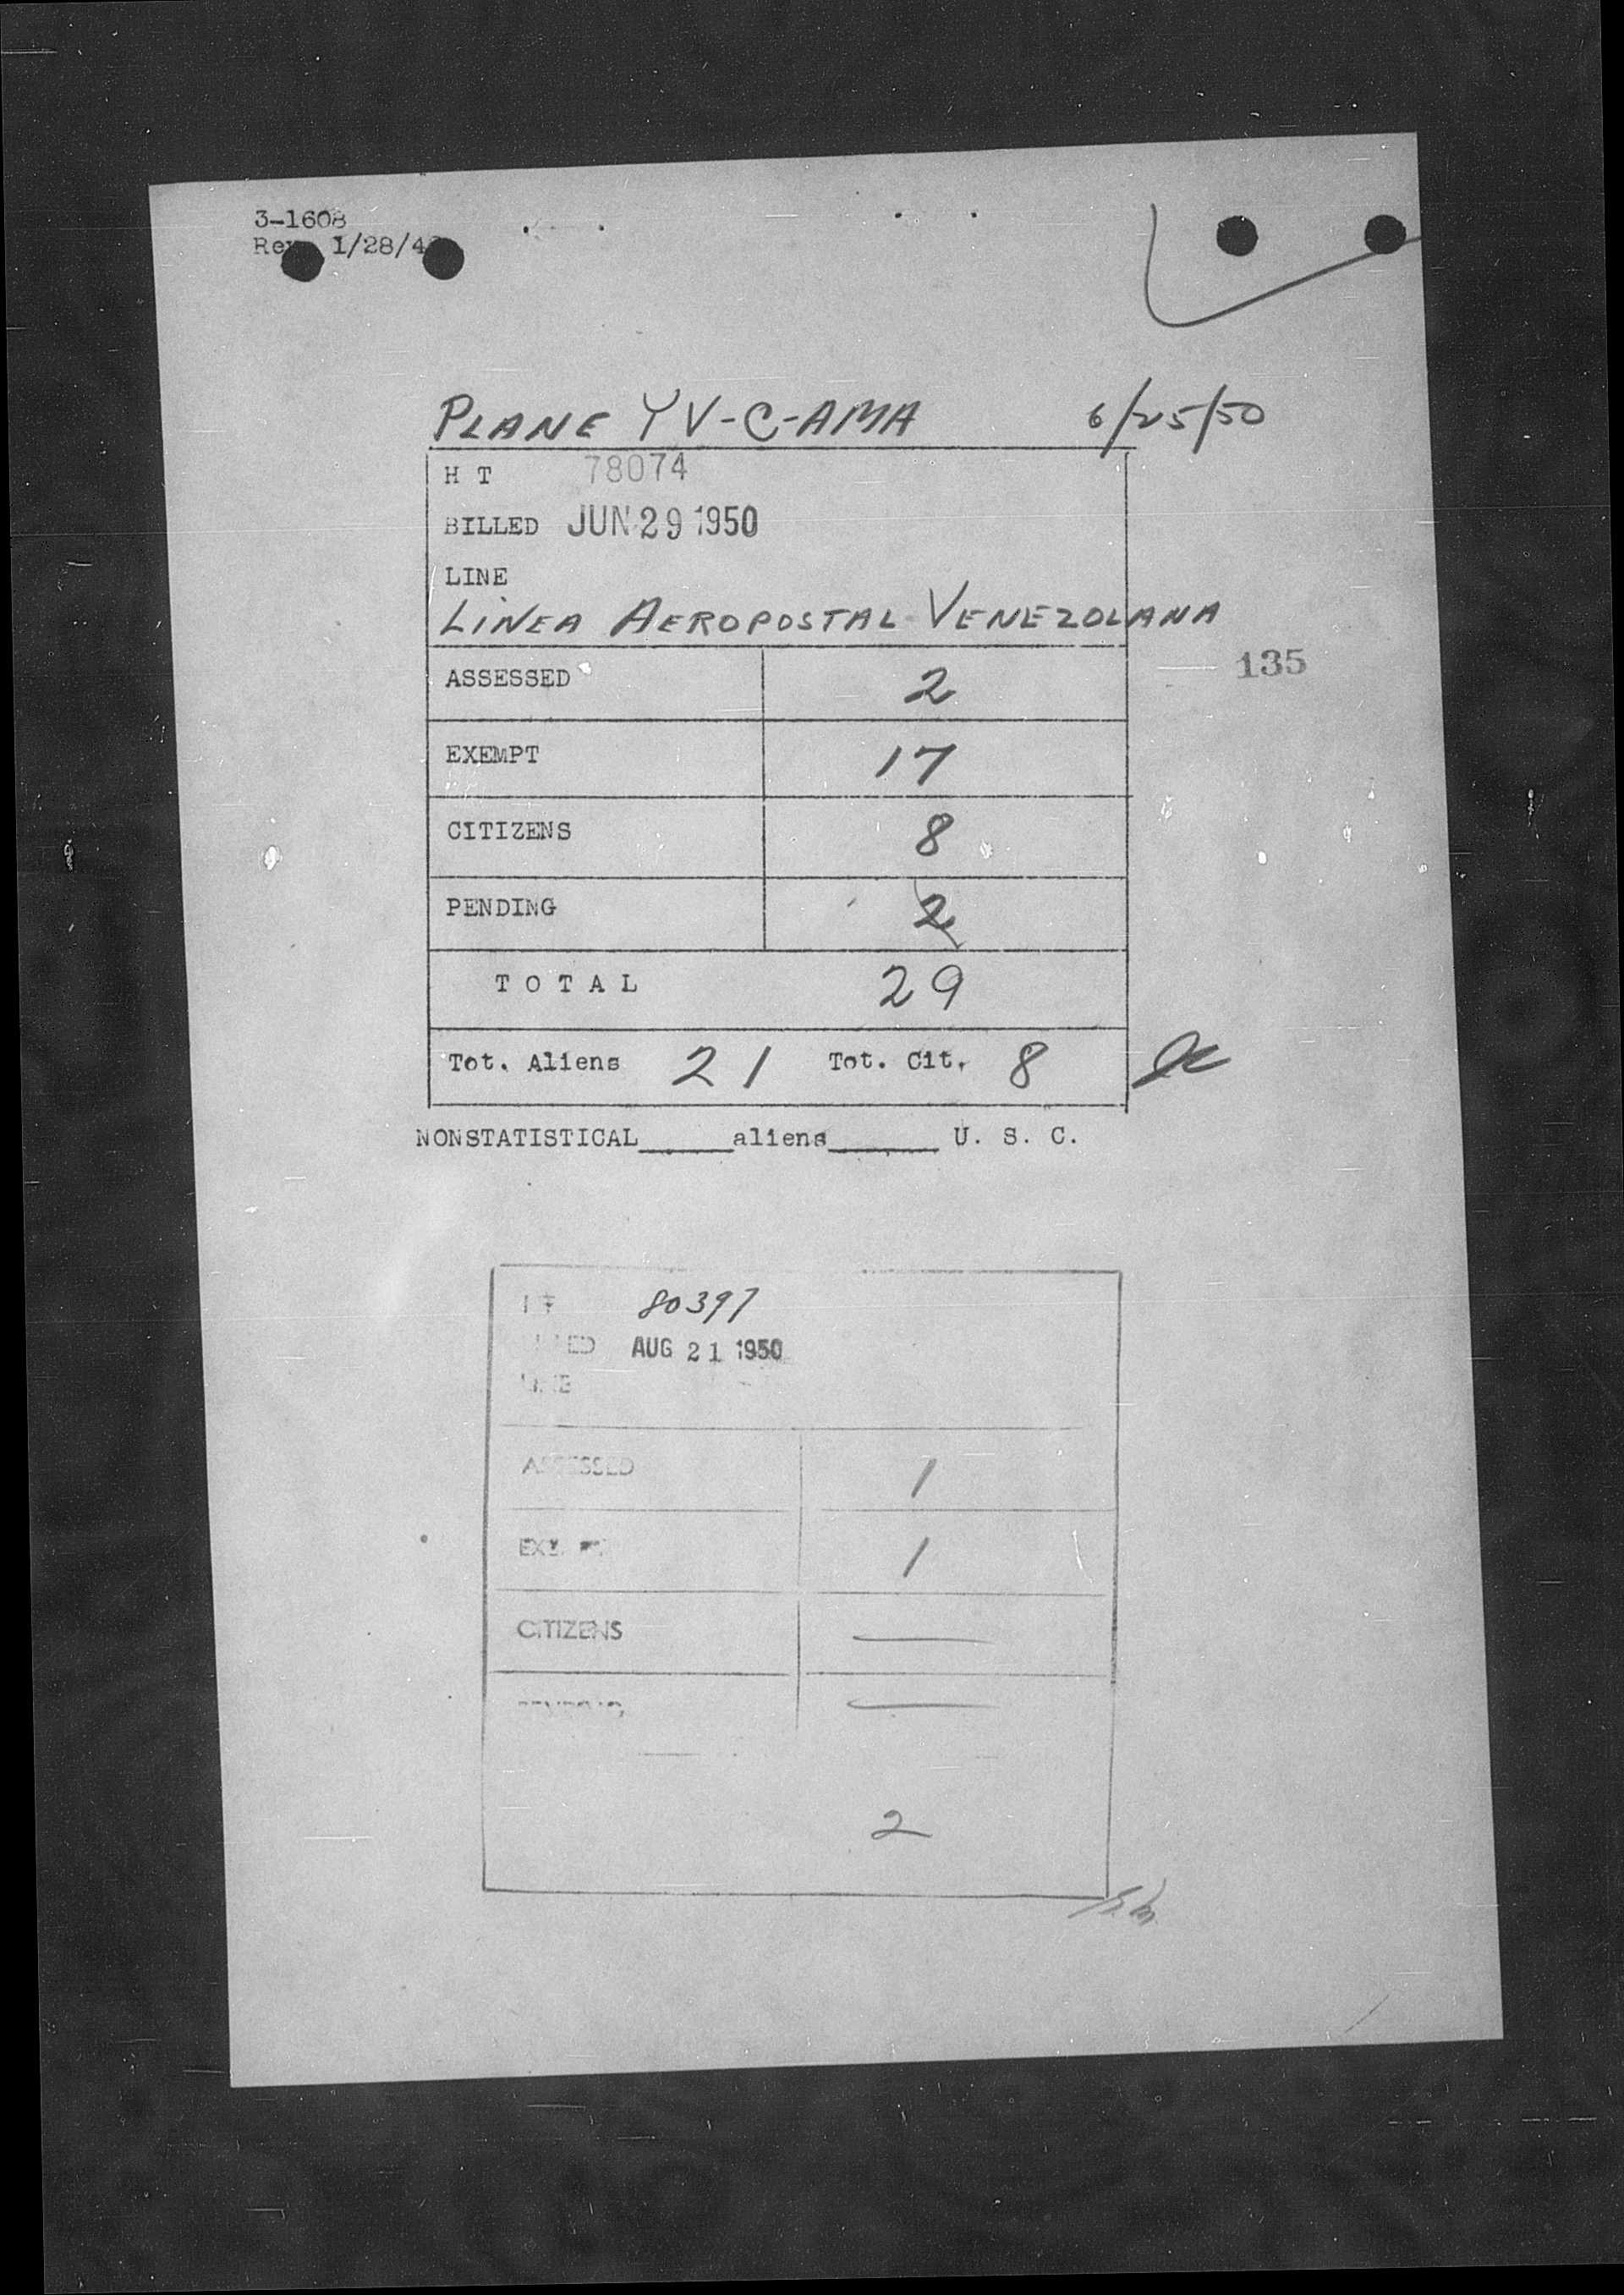 3-1608
Rev. 1/28/4
PLANE YV-C-AMA 6/25/50
H T 78074
BILLED JUN 29 1950
LINE
LINEA AEROPOSTAL VENEZOLANA
135
ASSESSED 2
EXEMPT 17
CITIZENS 8
PENDING 2
TOTAL 29
Tot. Aliens 21 Tot. Cit. 8
NONSTATISTICAL_____aliens______ U. S. C.
80397
AUG 21 1950
ASSESSED 1
1
CITIZENS —
—
2